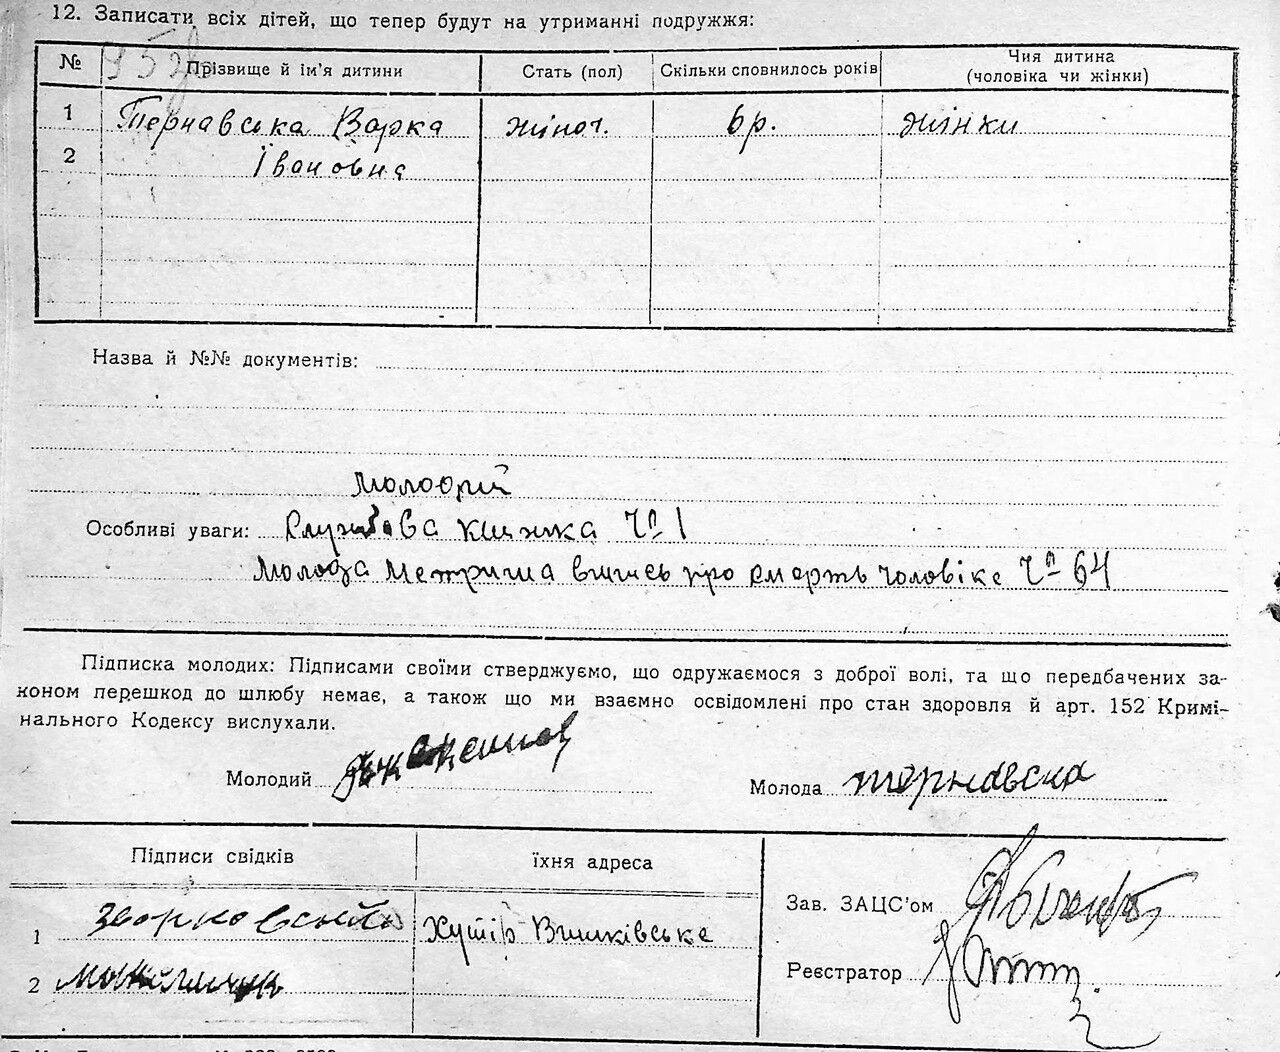 12. Записати всіх дітей, що тепер будут на утриманні подружжя:
№ Прізвище й ім'я дитини Стать (пол) Скільки сповнилось років Чия дитина
(чоловіка чи жінки)
1 Тернавська Варка жіноч. 6р. жінки
2 Івановна
Назва й №№ документів:
Молодий
Особливі уваги: Службова книжка Ч° 1
Молода Метрична випись про смерть чоловіка Ч° 64
Підписка молодих: Підписами своїми стверджуємо, що одружаємося з доброї волі, та що передбачених за-
коном перешкод до шлюбу немає, а також що ми взаємно освідомлені про стан здоровля й арт. 152 Кримі-
нального Кодексу вислухали.
Молодий
Молода терновска
Підписи свідків їхня адреса
Зав. ЗАЦС'ом
1 Хутір
2
Реєстратор